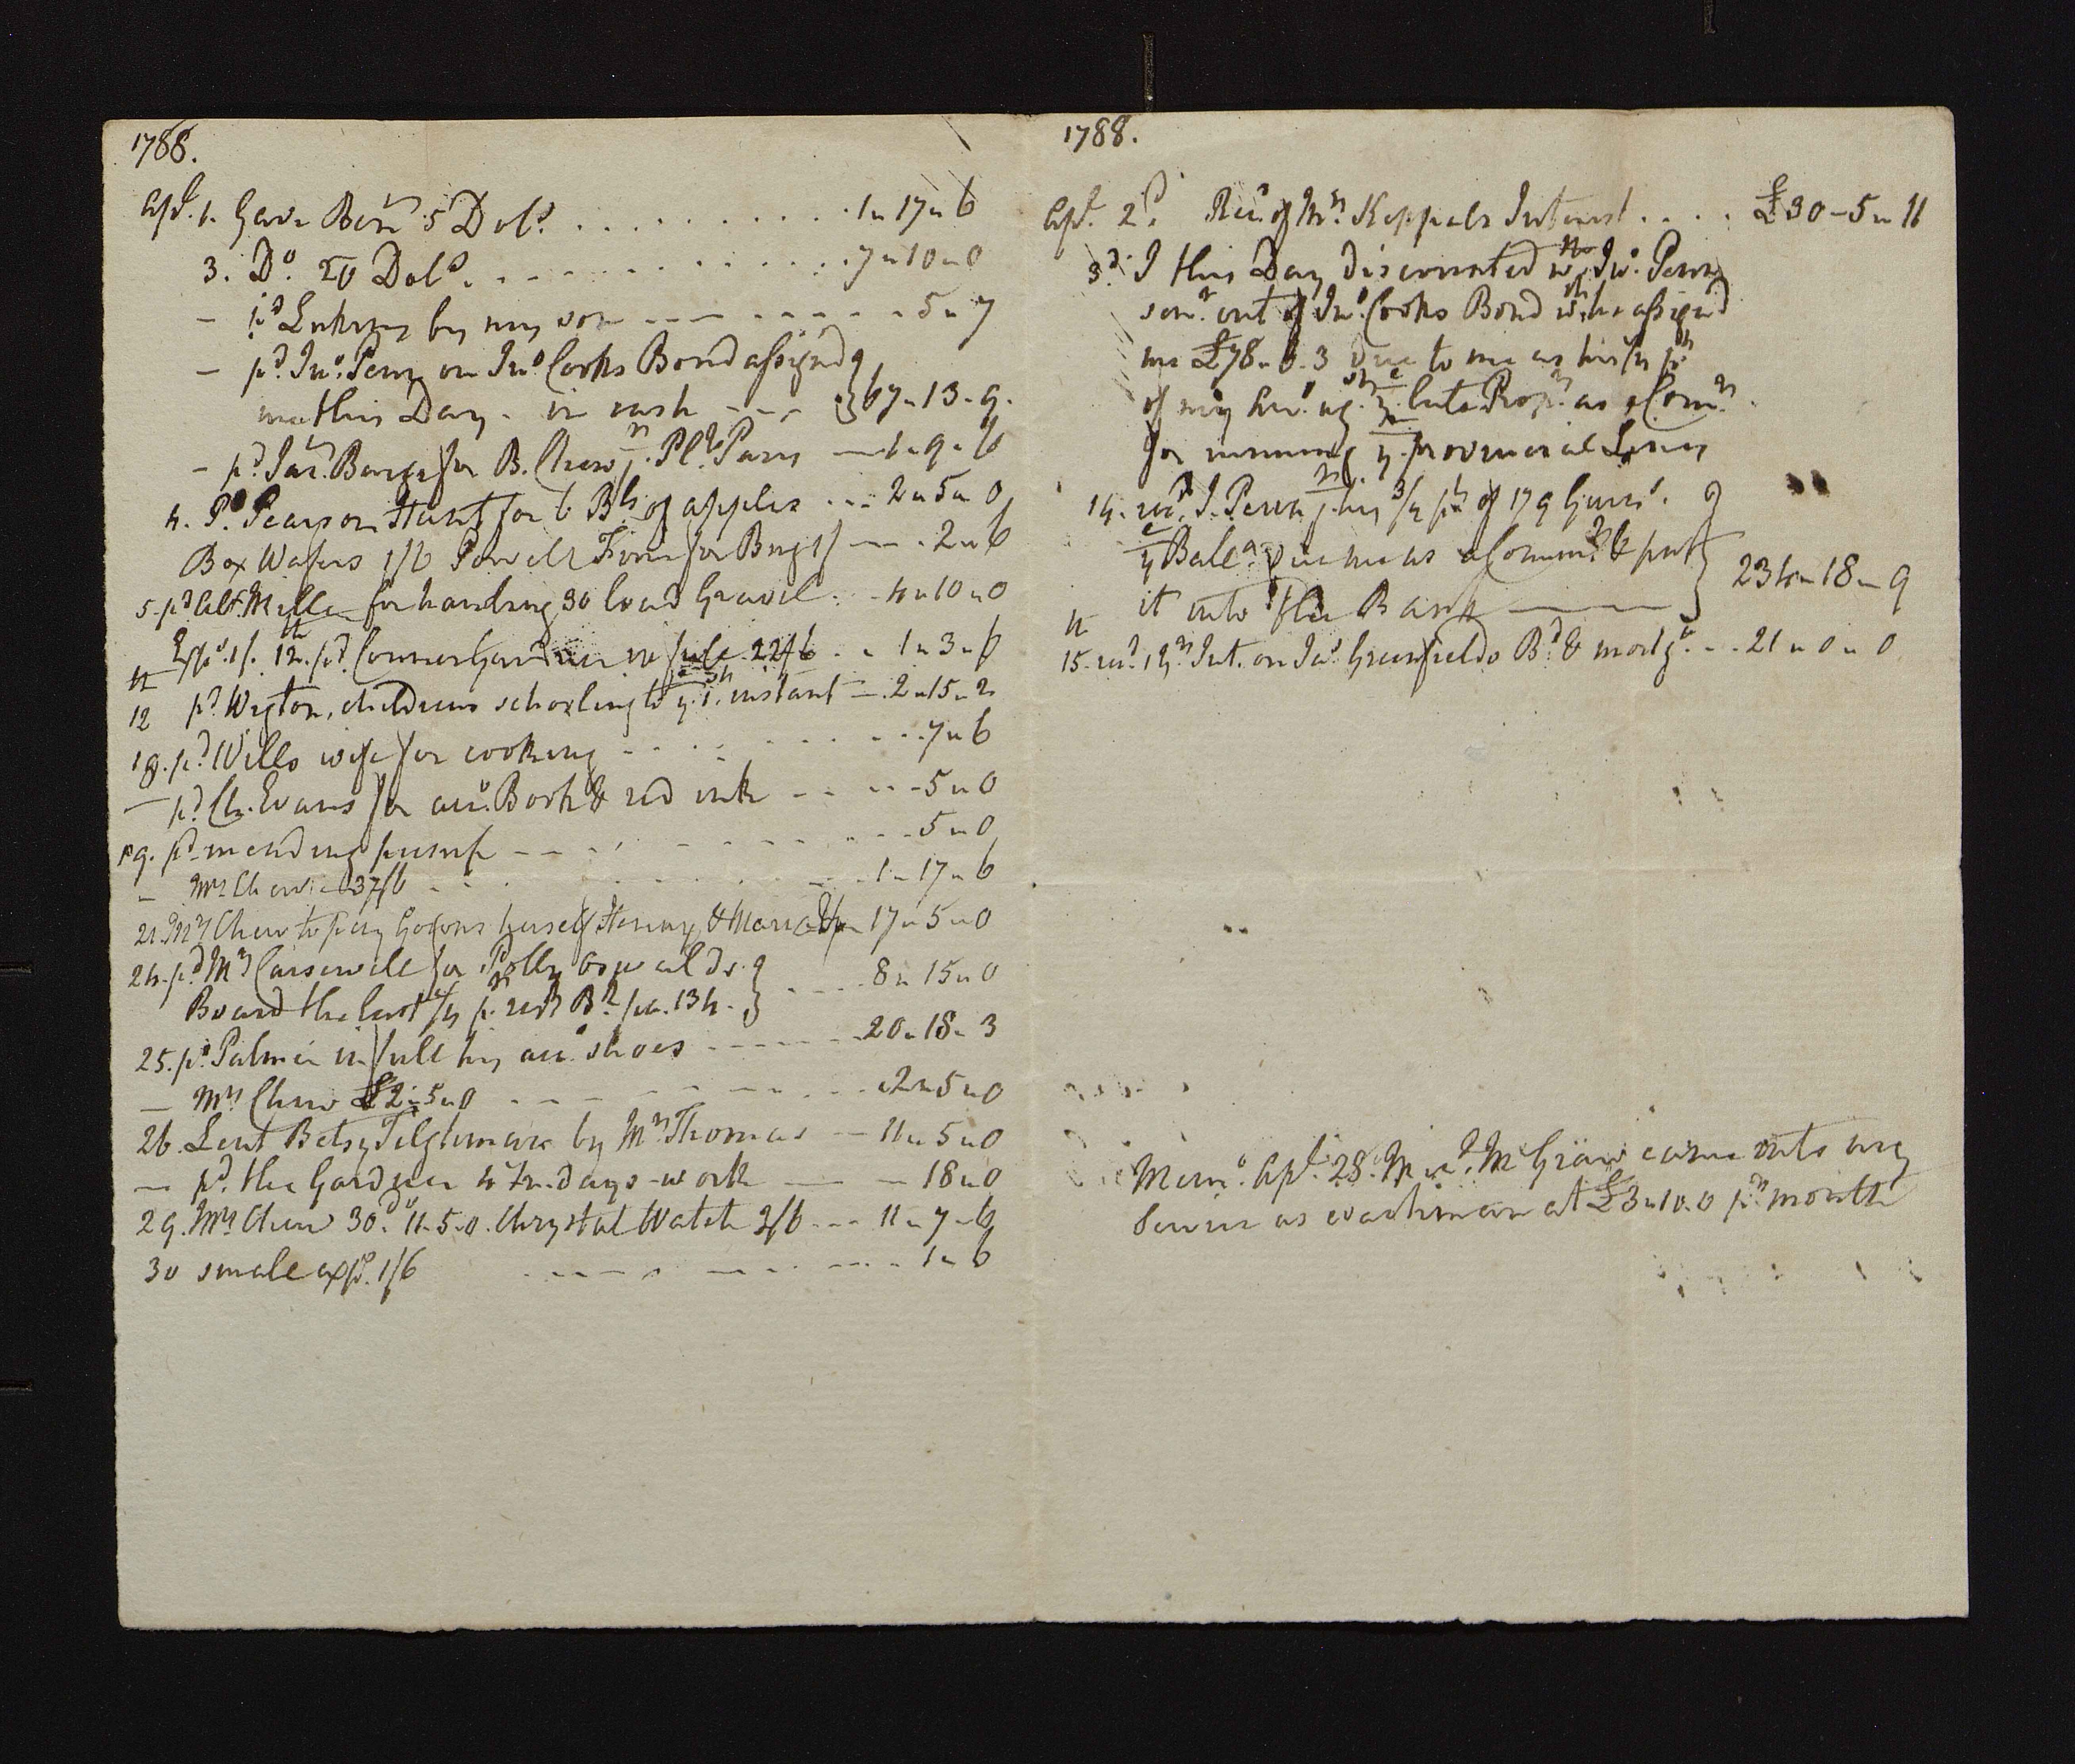 1788.
Apl. 1. Gave Ben 5 Dols. . . . . . . . . . . 1 " 17 " 6
3. Do. 20 Dols. - - - - - - - - - - 7 " 10 " 0
- pd by my son - - - - - - - 5 " 7
- pd. Jno. Penn on Jno Cooks Bond assignd
me this Day - in cash - - - } 67 " 13 - 9.
- pd. Jas. for B. Chew jr. Paris - 1 - 9 - 6
4. Pd. Pearson Hunt for 6 Bls of apples - - - 2 " 5 " 0
Box Wafers 1/6 1/ - - - 2 " 6
5. pd Alx Miller for hauling 30 load Gravel. - 4 " 10 " 0
Exps. 1/. 12th. pd. Conner Gardner in full 22/6 . - 1 " 3 - 6
4
12 pd. Wigton, childrens schooling to ye. 1st. instant - 2 " 15 " 2
18. pd. Wills wife for cooking - - - - - - - 7 " 6
- pd. Ch. Evans for acct. Book & red ink - - - - 5 " 0
19. pd mending pump - - - - - - - - 5 " 0
- Mrs Chew 37/6 - - - - - - - 1 " 17 " 6
21. Mrs Chew to pay Gowns herself Henny & Maria &c 17 " 5 " 0
24. pd Mrs Carswell for Polly Oswalds
Board the last ¼ pr. rect Bk. pa. 134. } - - - 8 " 15 " 0
25. pd. Palmer in full his acct. shoes - - - - - 20 " 18 " 3
- Mrs Chew £2 " 5 " 0 - - - - - - 2 " 5 " 0
26. Lent Betsy Tilghman by Mrs Thomas - - 11 " 5 " 0
- pd. the Gardner 4 days work - - - 18 " 0
29. Mrs Chew 30 drs 11-5-0. Chrystal Watch 2/6 - - - 11 " 7 - 6
30 small exps. 1/6 - - - - - - - 1 " 6
1788.
Apl. 2d. Recd of Mrs. Keppels Interest . . . . £30 - 5 " 11
3d. I this Day discounted with Jno. Penn
senr. out of Jno. Cooks Bond wch he assigned
me £78 " 6 - 3 due to me as his ¼ pt
of my acct. agst ye. late Propr. as a Comr.
for running ye. provincial Lines
14. recd. J. Penn jr. his ¾ pt of 179 Guins.
ye Balce. due me as a Commr. & put
it into the Bank } 234 " 18 " 9
4
15. recd. 1 yrs Int. on Jas. Greenfields Bd. & mortge. - - 21 " 0 " 0
Memo. Apl. 28. McGraw came into my
service as coachman at £3 " 10 . 0 pr month